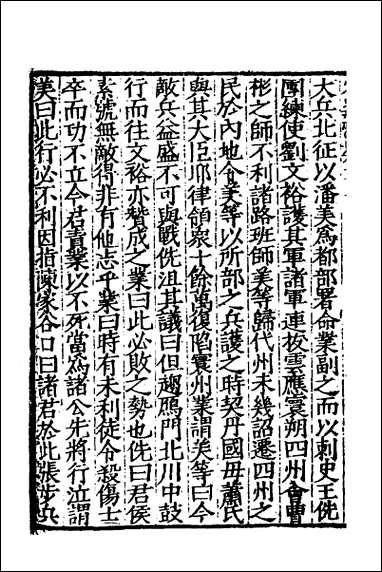 大兵北征以潘美為都部署命業副之而以刺史王侁
團練使劉文裕護其軍諸軍連拔雲應寰朔四州會曹
彬之師不利諸路班師美等歸代州未幾詔遷四州之
民於内地令美等以所部之兵護之時契丹國母蕭氏
與其大臣耶律領衆十餘萬復陷寰州業謂美等曰今
敵兵益盛不可與戰侁沮其議曰但趨鴈門北川中鼓
行而往文裕亦贊成之業曰此必敗之勢也侁曰君侯
素號無敵得非有他志乎業曰時有未利徒令殺傷士
卒而功不立今君責業以不死當為諸公先將行泣謂
美曰此行必不利因指陳家谷口曰諸君於此張步兵